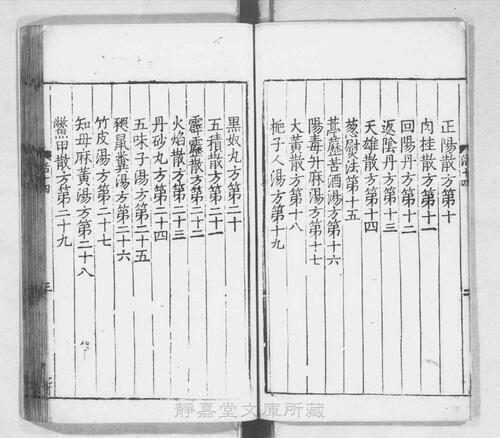 正陽散方第十
肉桂散方第十一
回陽丹方第十二
返陰丹方第十三
天雄散方第十四
葱熨法第十五
葶藶苦酒湯方第十六
陽毒升麻湯方第十七
大黃散方第十八
梔子人湯方第十九
黑奴丸方第二十
五積散方第二十一
霹靂散方第二十二
火焰散方第二十三
丹砂丸方第二十四
五味子湯方第二十五
豭鼠糞湯方第二十六
竹皮湯方第二十七
知母麻黃湯方第二十八
鱉甲散方第二十九
三
靜嘉堂文庫所藏